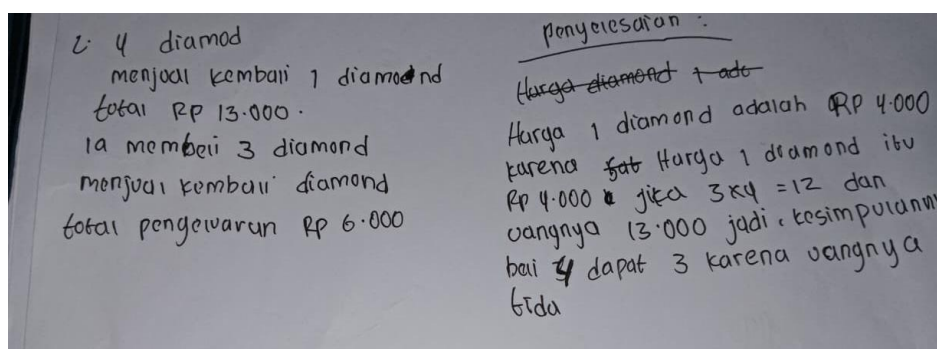 2. 4 diamod
menjual kembali 1 diamond
total RP 13.000.
ia membeli 3 diamond
menjual kembali diamond
total pengewaran RP 6.000
penyelesaian :
Harga diamond 1 ada
Harga 1 diamond adalah RP 4.000
karena Harga 1 diamond itu
RP 4.000 jika 3x4 = 12 dan
uangnya 13.000 jadi, kesimpulannya
bai 4 dapat 3 karena uangnya
tida